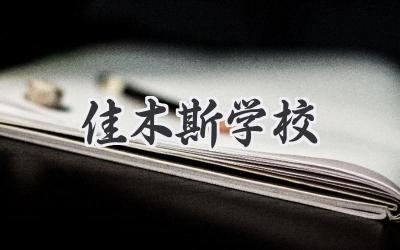 佳木斯学校